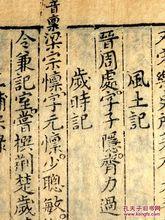 風土記
晉周處字子隱膂力過
歲時記
音稟梁宗懍字元懍少聰敏
令兼記室嘗撰荆楚歲